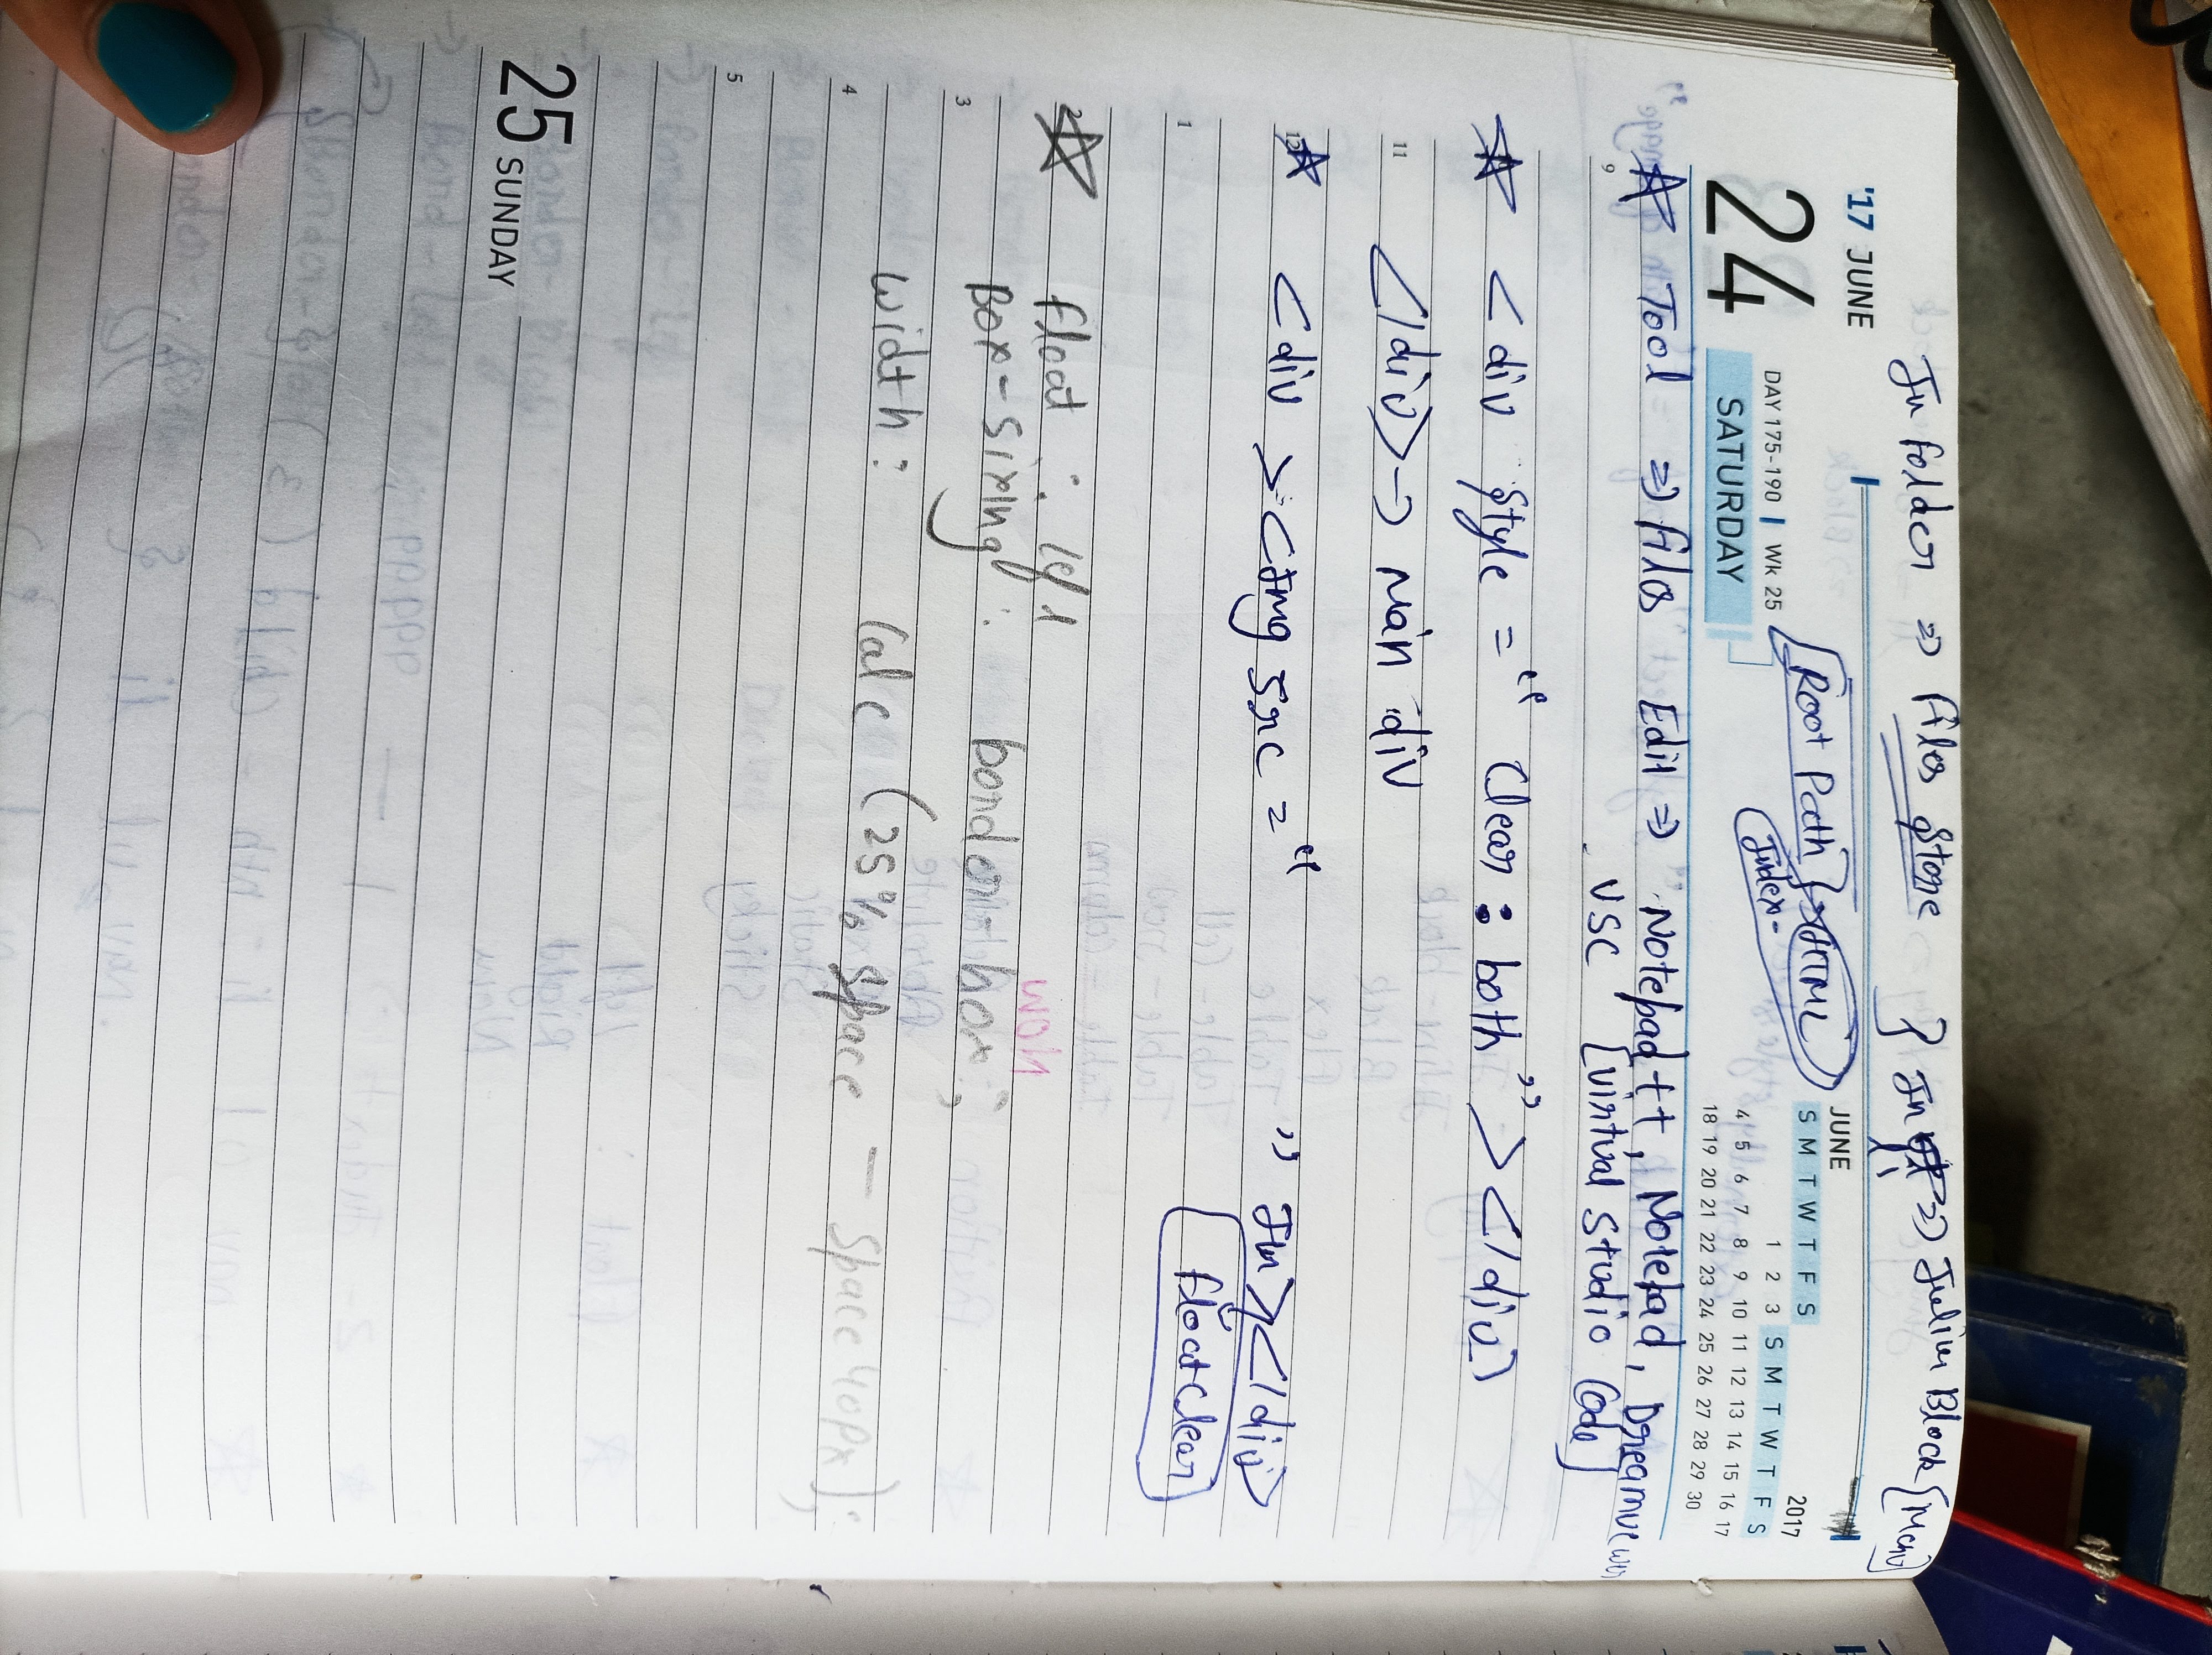 In folder ⇒ Files store } In ⇒ Inline Block {Menu}
'17 JUNE
24
DAY 175-190 | Wk 25
SATURDAY
[Root Path} HTML
Index.
JUNE 2017
S M T W T F S S M T W T F S
1 2 3
4 5 6 7 8 9 10 11 12 13 14 15 16 17
18 19 20 21 22 23 24 25 26 27 28 29 30
Tool ⇒ Files Edit ⇒ Notepad++, Notepad, Dreamviewer
9
VSC [Virtual Studio Code]
< div style = " Clear : both "> </div>
11
</div> → Main div
12
<div > <Img src = " " Im></div>
1
float clear
2
float : left
Box-sixing : border-box;
3
width : Calc (25% space — space 40px);
4
5
25 SUNDAY